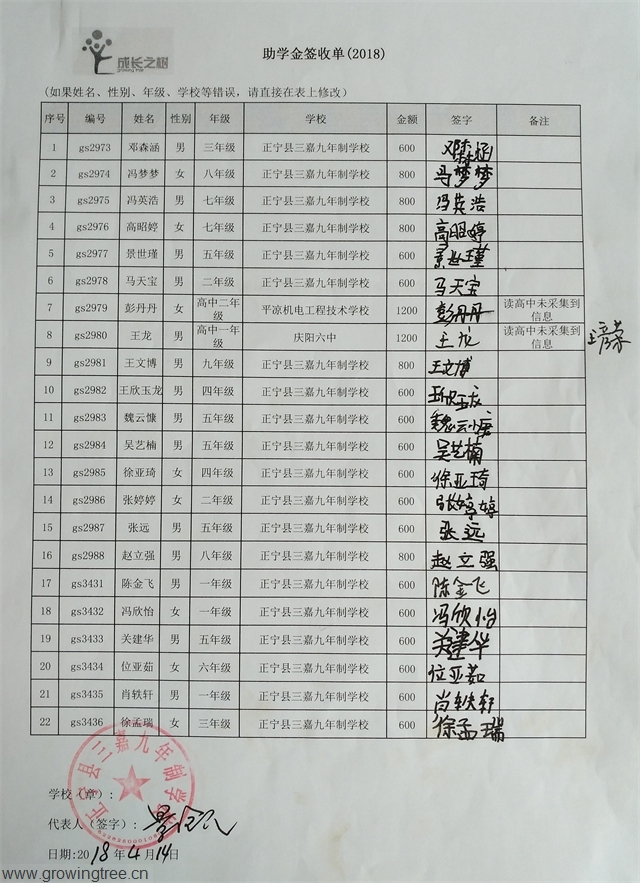 成长之树
growing tree
助学金签收单(2018)
(如果姓名、性别、年级、学校等错误，请直接在表上修改)
序号 编号 姓名 性别 年级 学校 金额 签字 备注
1 gs2973 邓森涵 男 三年级 正宁县三嘉九年制学校 600 邓森涵
2 gs2974 冯梦梦 女 八年级 正宁县三嘉九年制学校 800 冯梦梦
3 gs2975 冯英浩 男 七年级 正宁县三嘉九年制学校 800 冯英浩
4 gs2976 高昭婷 女 七年级 正宁县三嘉九年制学校 800 高昭婷
5 gs2977 景世瑾 男 五年级 正宁县三嘉九年制学校 600 景世瑾
6 gs2978 马天宝 男 二年级 正宁县三嘉九年制学校 600 马天宝
7 gs2979 彭丹丹 女 高中二年级 平凉机电工程技术学校 1200 彭丹丹 读高中未采集到信息
8 gs2980 王龙 男 高中一年级 庆阳六中 1200 王龙 读高中未采集到信息
9 gs2981 王文博 男 九年级 正宁县三嘉九年制学校 800 王文博
10 gs2982 王欣玉龙 男 四年级 正宁县三嘉九年制学校 600 王欣玉龙
11 gs2983 魏云慷 男 五年级 正宁县三嘉九年制学校 600 魏云慷
12 gs2984 吴艺楠 男 五年级 正宁县三嘉九年制学校 600 吴艺楠
13 gs2985 徐亚琦 女 四年级 正宁县三嘉九年制学校 600 徐亚琦
14 gs2986 张婷婷 女 二年级 正宁县三嘉九年制学校 600 张婷婷
15 gs2987 张远 男 五年级 正宁县三嘉九年制学校 600 张远
16 gs2988 赵立强 男 八年级 正宁县三嘉九年制学校 800 赵立强
17 gs3431 陈金飞 男 一年级 正宁县三嘉九年制学校 600 陈金飞
18 gs3432 冯欣怡 女 一年级 正宁县三嘉九年制学校 600 冯欣怡
19 gs3433 关建华 男 五年级 正宁县三嘉九年制学校 600 关建华
20 gs3434 位亚茹 女 六年级 正宁县三嘉九年制学校 600 位亚茹
21 gs3435 肖轶轩 男 一年级 正宁县三嘉九年制学校 600 肖轶轩
22 gs3436 徐孟瑞 女 三年级 正宁县三嘉九年制学校 600 徐孟瑞
正宁县三嘉九年制学校
学校（章）:
代表人（签字）:
日期:2018年4月14日
www.growingtree.cn